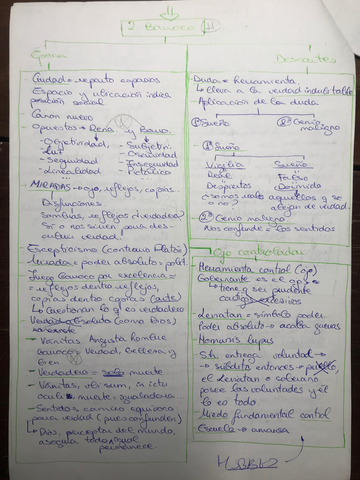 2 Barroco II
Época
Ciudad = reparto espacios
Espacio y ubicación indica
posición social
Canon nuevo
- Opuestos → Rena. y Barro.
- Objetividad, - Subjetivi.
- Luz - Oscuridad
- Seguridad - Inseguridad
- Linealidad - Retórico
MIRADAS → ojo, reflejos, copias
Disfunciones
Sombras, reflejos (verdaderos)
Sí o no sirven para des-
cubrir verdad
Escepticismo (contrario Platón)
Mirada = poder absoluto = polit.
Juego Barroco por excelencia =
= reflejos dentro reflejos,
copias dentro copias (arte)
↳ Cuestionan lo q es verdadero
Verdad absoluta (como Dios)
- Vanitas Angustia hombre
Barroco = Verdad, belleza y
bien
- Verdadero = solo muerte
- Vanitas, ubi sunt, in ictu
oculi muerte igualadora
- Sentidos camino equívoco
para verdad (pues confunden)
↳ Dios, perceptor del mundo,
asegura todo igual
permanece
Descartes
Duda = Herramienta
↳ lleva a la verdad indubitable
- Aplicación de la duda
1º Sueño 2º Genio
maligno
1º Sueño
Vigilia Sueño
Real Falso
Despertos Dormido
→ Somos reales aquellos q se
alejan de verdad
2º Genio maligno
Nos confunde = los sentidos
Ojo controlador
Herramienta control (ojo)
Gobernante es el q es
↳ tiene q ser prudente
castigos necesarios
- Leviatan = símbolo poder
Poder absoluto → acaba guerras
- Homunis lupus
- Sh. entrega voluntad →
→ súbdito entonces → pueblo,
el Leviatan o soberano
posee las voluntades y él
lo es todo
- Miedo fundamental control
Escuela → amansa
HOBBES